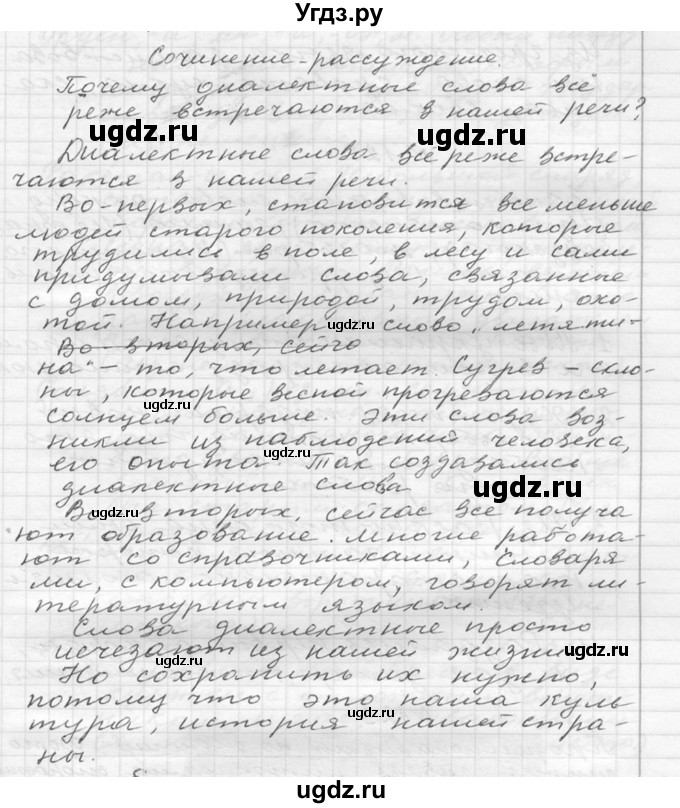 Угдз.ру
Сочинение-рассуждение.
Почему диалектные слова всё
реже встречаются в нашей речи?
ugdz.ru ugdz.ru
Диалектные слова все реже встре-
чаются в нашей речи.
Во-первых, становится все меньше
людей старого поколения, которые
трудились в поле, в лесу и сами
придумывали слова, связанные
с домом, природой, трудом, охо-
той. Например слово „летяти-
ugdz.ru
Во-вторых, сейча
на" – то, что летает. Сугрев – скло-
ны, которые весной прогреваются
ugdz.ru
солнцем больше. Эти слова воз-
никли из наблюдений человека,
его опыта. Так создавались
диалектные слова
ugdz.ru ugdz.ru
Во-вторых, сейчас все получа
ют образование. Многие работа-
ют со справочниками, словаря
ми, с компьютером, говорят ли-
тературным языком.
Слова диалектные просто
исчезают из нашей жизни
ugdz.ru
Но сохранить их нужно,
потому что это наша куль
ugdz.ru
тура, история нашей стра-
ны.
ugdz.ru ugdz.ru